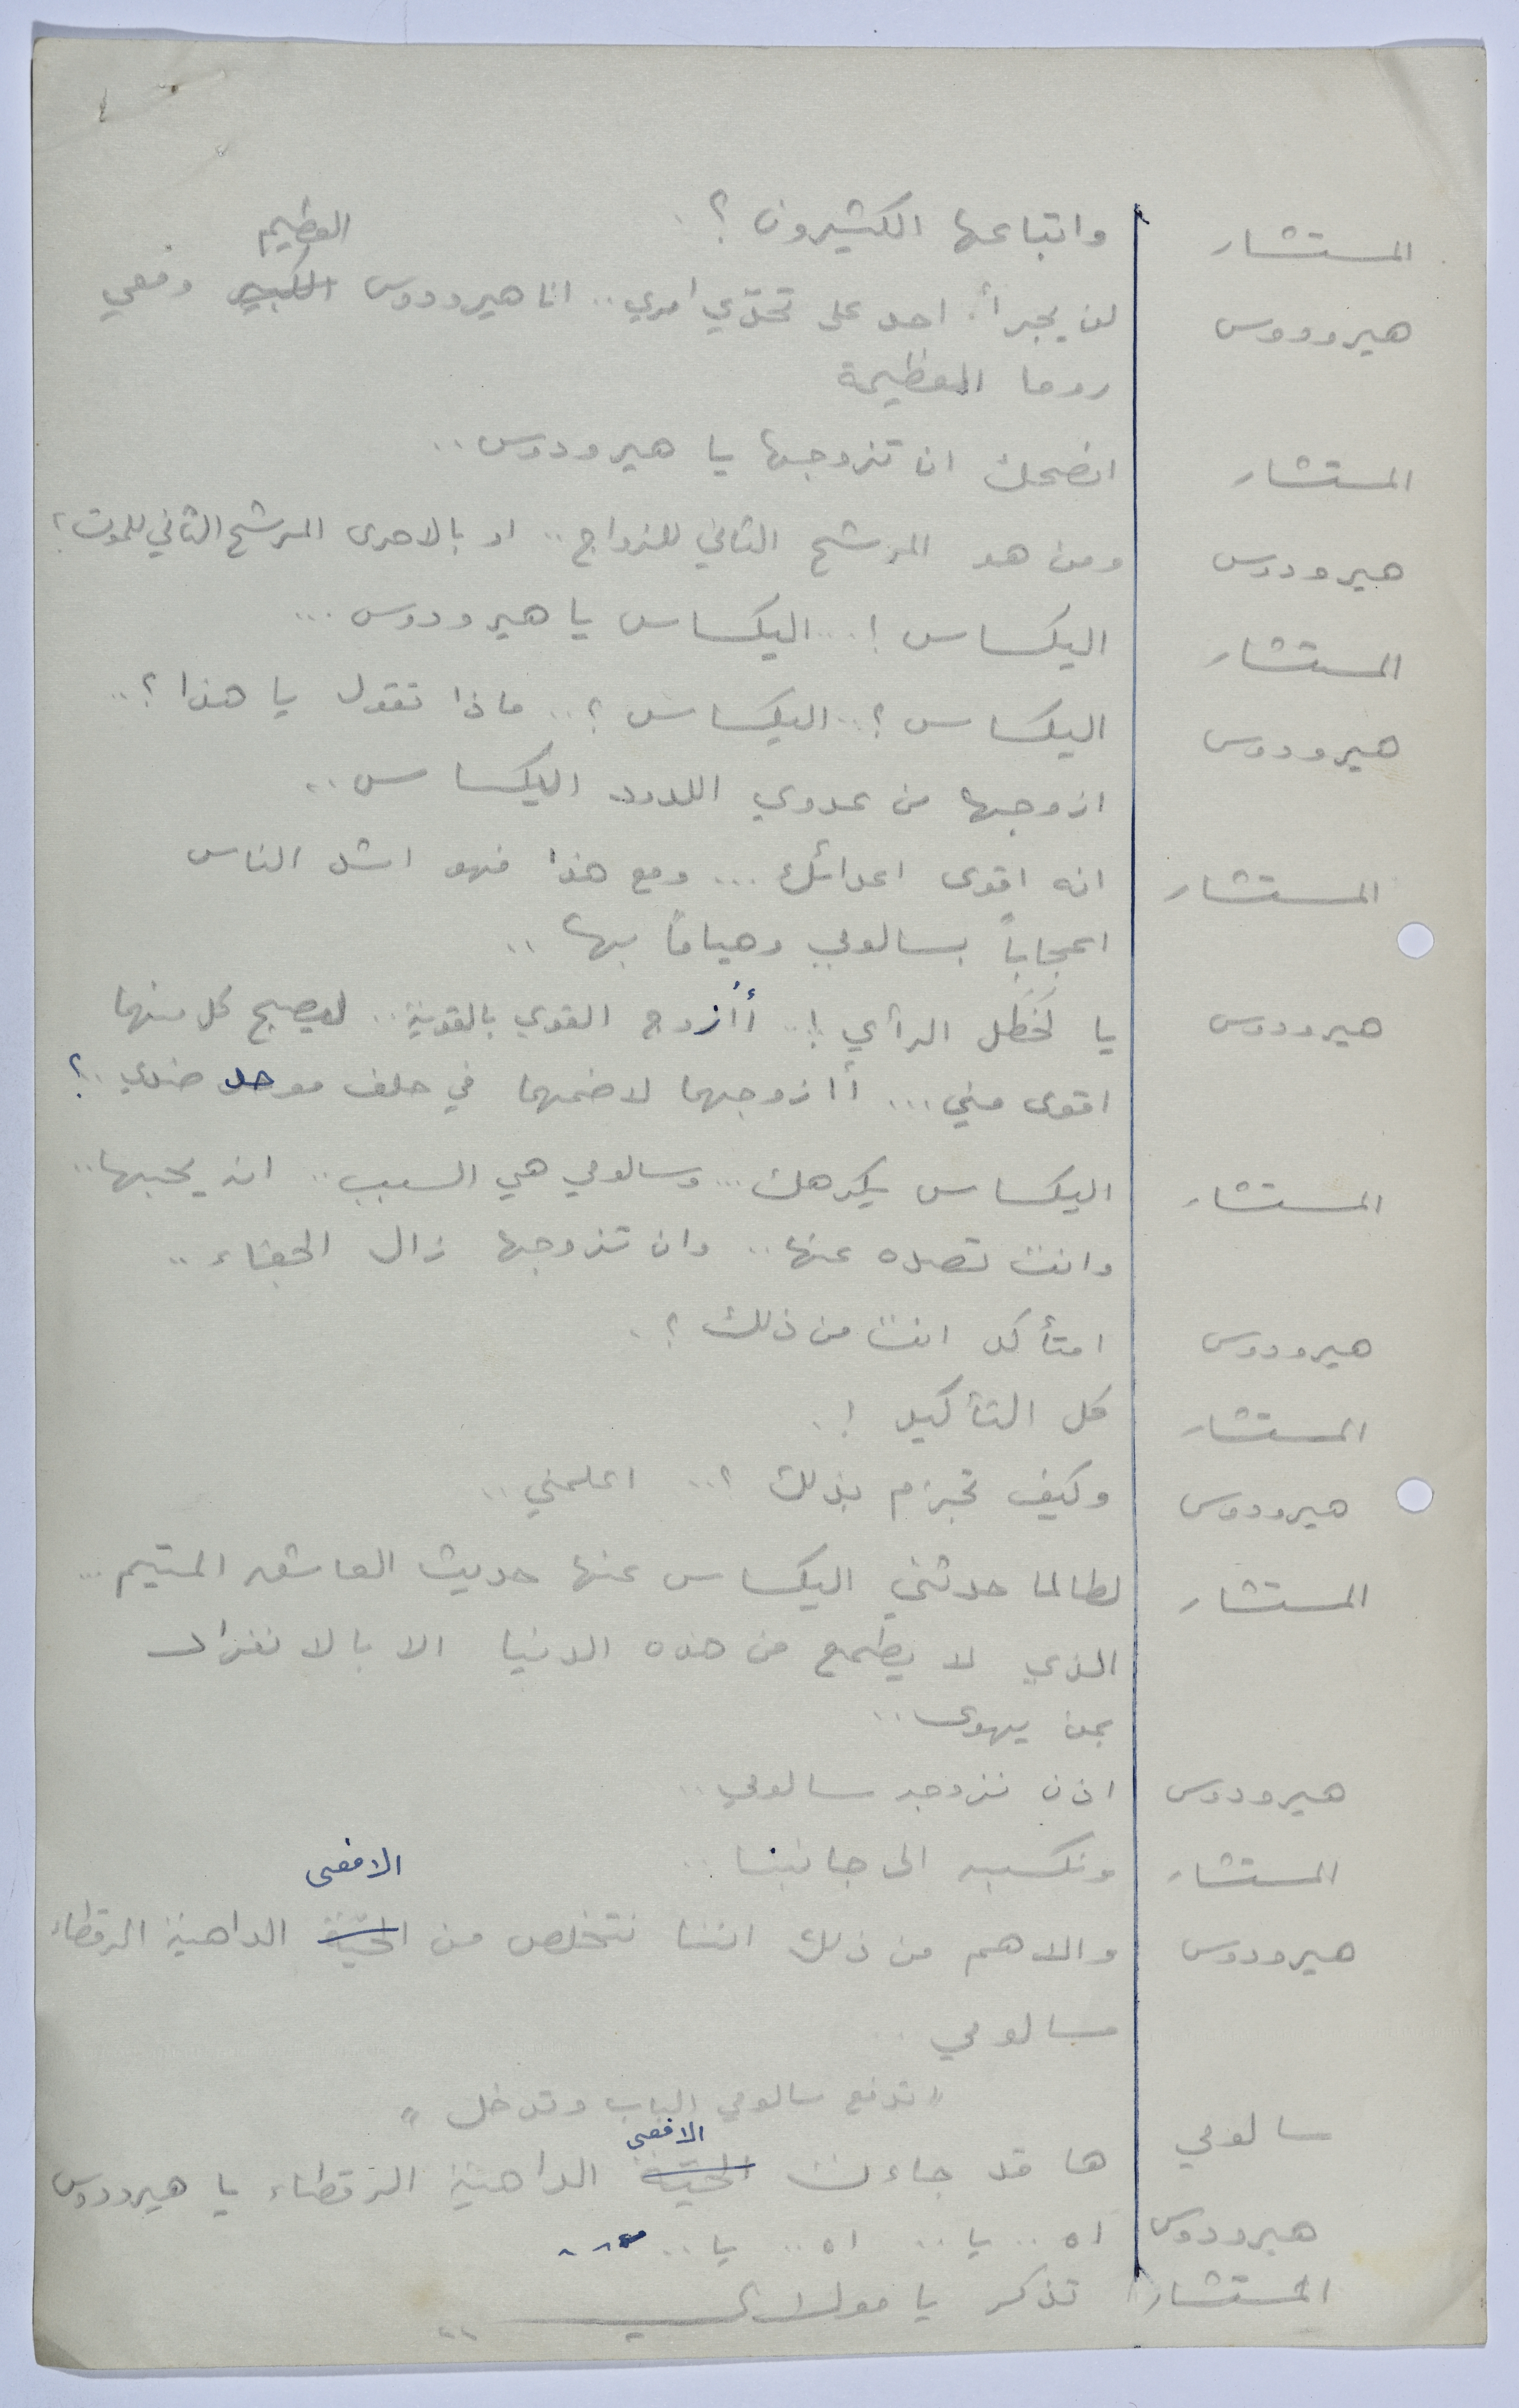 ٤
المستشار واتباعها الكثيرون ؟.
العظيم
هيرودوس لن يجرأ احد على تحدّي امري .. انا هيرودوس الكبير ومعي
روما العظيمة
المستشار انصحك ان تزوجها يا هيرودوس ..
هيرودوس ومن هو المرشح الثاني للزواج .. او بالاحرى المرشح الثاني للموت ؟
المستشار اليكساس ! .. اليكساس يا هيرودوس ...
هيرودوس اليكساس ؟ .. اليكساس ؟ .. ماذا تقول يا هذا ؟ ..
ازوجها من عدوي اللدود اليكساس ..
المستشار انه اقوى اعدائك ... ومع هذا فهو اشد الناس
اعجاباً بسالومي وهياماً بها ..
هيرودوس يا لخَطَل الرأي ! .. أأزوج القوي بالقوية .. ليصبح كل منهما
اقوى مني ... أازوجهما لاضمهما في حلف موحد ضدي .. ؟
المستشار اليكساس يكرهك ... وسالومي هي السبب .. انه يحبها ..
وانت تصده عنها .. وان تزوجها زال الجفاء ..
هيرودوس امتأكد انت من ذلك ؟ .
المستشار كل التأكيد ! .
هيرودوس وكيف تجزم بذلك ؟ .. اعلمني ..
المستشار لطالما حدثني اليكساس عنها حديث العاشق المتيم ...
الذي لا يطمع من هذه الدنيا الا بالانفراد
بمن يهوى ..
هيرودوس اذن نزوجه سالومي ..
المستشار ونكسبه الى جانبنا ..
الافعى
هيرودوس والاهم من ذلك اننا نتخلص من الحيّة الداهية الرقطاء
سالومي ..
" تدفع سالومي الباب وتدخل "
الافعى
سالومي ها قد جاءت الحيّة الداهية الرقطاء يا هيرودوس
هيرودوس اه .. يا .. اه .. يا ..
المستشار تذكر يا مولاي ..